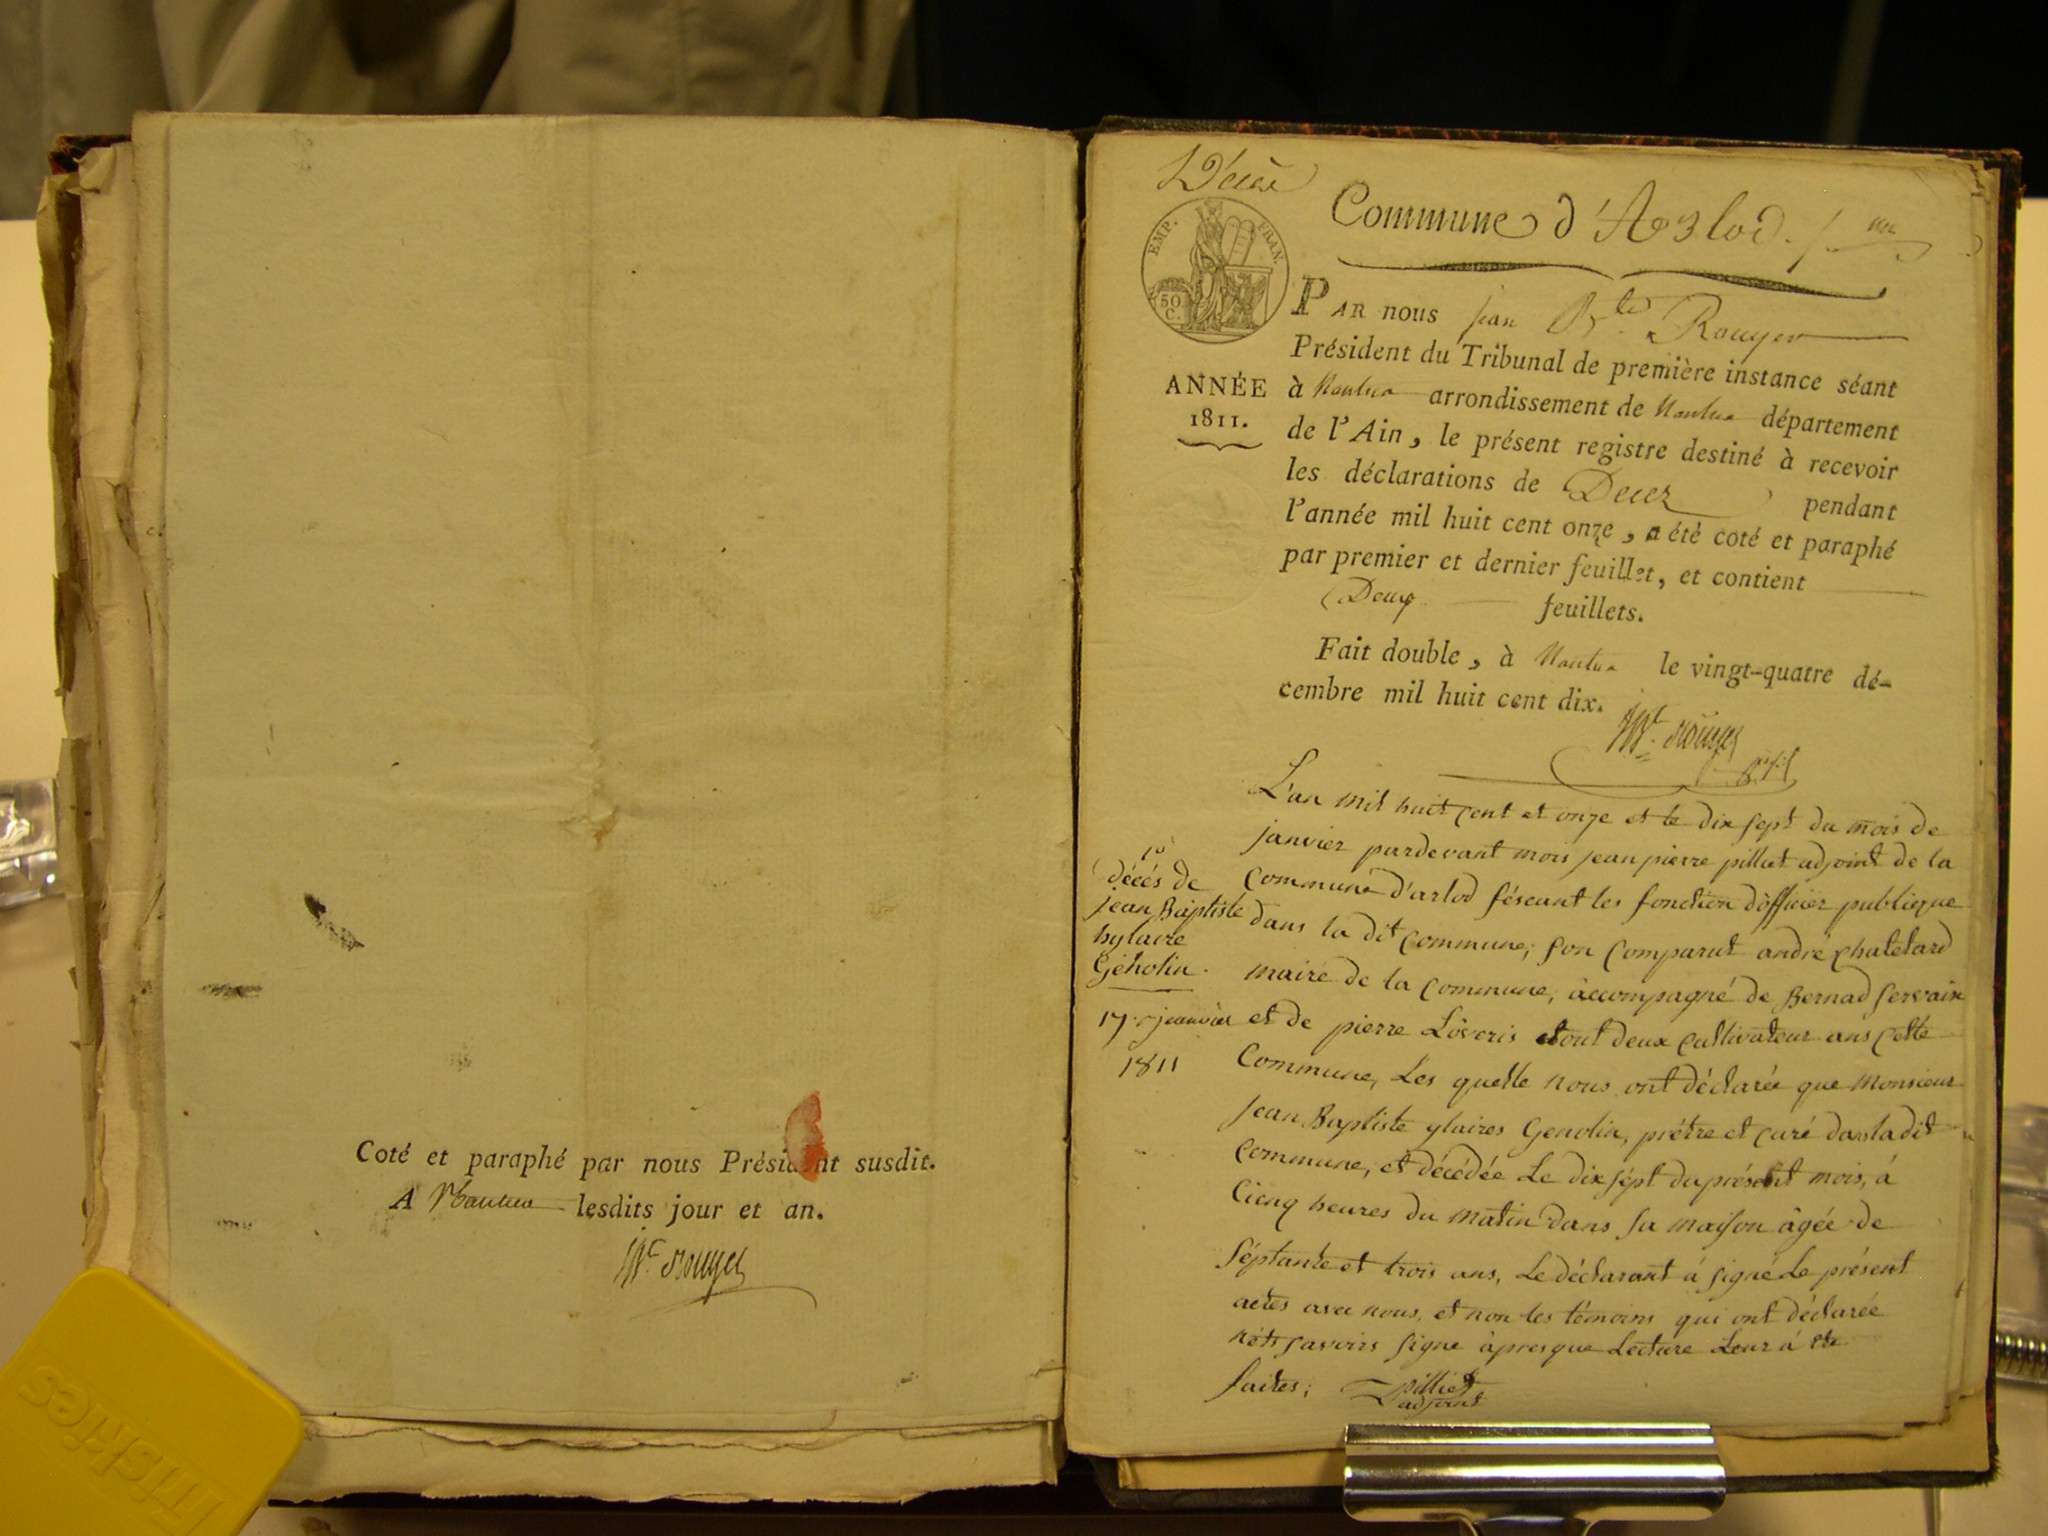 Coté et paraphé par nous Président susdit.
A Nantua lesdits jour et an.
Rouyer
Décès
EMP. FRAN.
50 C.
Commune d'Arlod.
ANNÉE
1811.
PAR nous jean Bte Rouyer
Président du Tribunal de première instance séant
à Nantua arrondissement de Nantua département
de l'Ain, le présent registre destiné à recevoir
les déclarations de Decez pendant
l'année mil huit cent onze, a été coté et paraphé
par premier et dernier feuillet, et contient
Deux feuillets.
Fait double, à Nantua le vingt-quatre dé-
cembre mil huit cent dix.
Rouyer
1º
décés de
jean Baptiste
hylaire
Genolin.
17 janvier
1811
L'an mil huit cent et onze et le dix sept du mois de
janvier pardevant mois jean pierre pilliet adjoint de la
Commune d'arlod féseant les fonction d'officier publique
dans la dit commune; son comparut andré chatelard
maire de la commune, accompagné de Bernad servaix
et de pierre Loveris étont deux cultivateur ans cette
Commune, Les quelle nous ont déclarée que monsieur
jean Baptiste ylaires Genolin, prétre et curé dans la dit
commune, et décédée Le dix sépt du présent mois, á
Cienq heures du matin dans sa maison âgée de
séptante et trois ans, Le déclarant á signé Le présent
actes avec nous, et non les témoins qui ont déclarée
savoirs signe âpres que Lecture Leur á éte
faites; pilliet
adjoint
Triskies